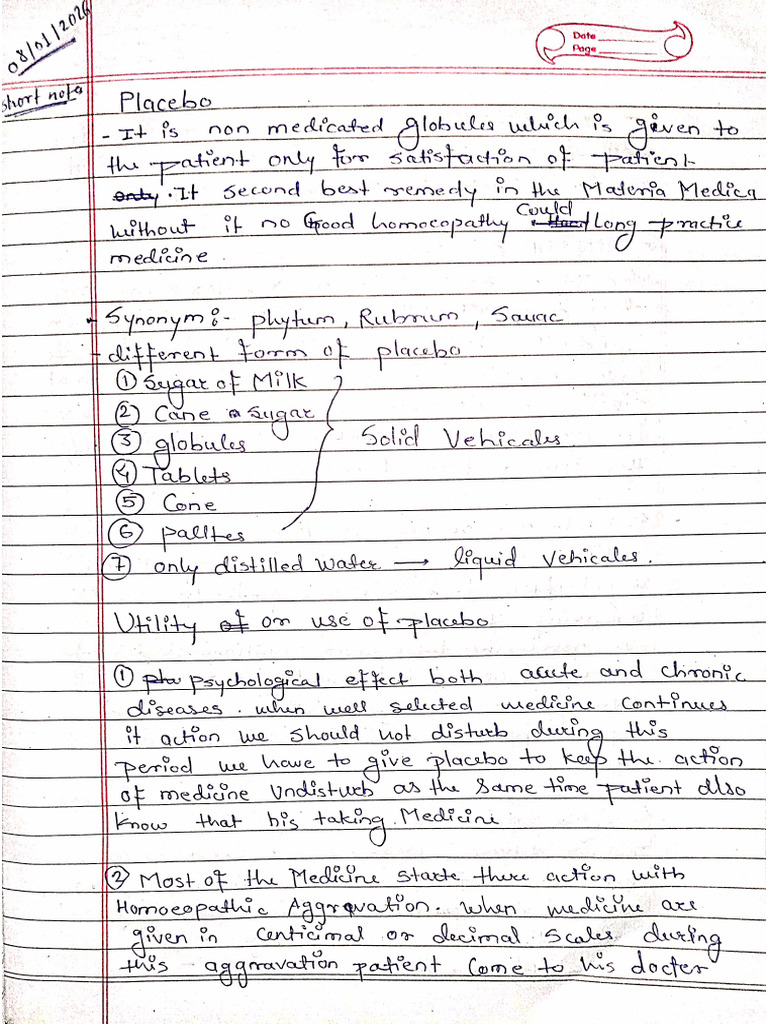 08/01/2026
Date
Page
short note
Placebo
- It is non medicated globules which is given to
the patient only for satisfaction of patient
only . It second best remedy in the Materia Medica
without it no Good homoeopathy Could Long practice
medicine.
- Synonym :- phytum, Rubrum, Saurac
- different form of placebo
① Sugar of Milk
② Cane Sugar
③ globules
④ Tablets
⑤ Cone
⑥ palltes
Solid Vehicales
⑦ only distilled water → liquid vehicales.
Utility of or use of placebo
① psychological effect both acute and chronic
diseases. when well selected medicine continues
it action we should not disturb during this
period we have to give placebo to keep the action
of medicine Undisturb as the same time patient also
know that his taking. Medicine
② Most of the Medicine starte there action with
Homoeopathic Aggravation. when medicine are
given in centicimal or decimal scales during
this aggravation patient come to his docter